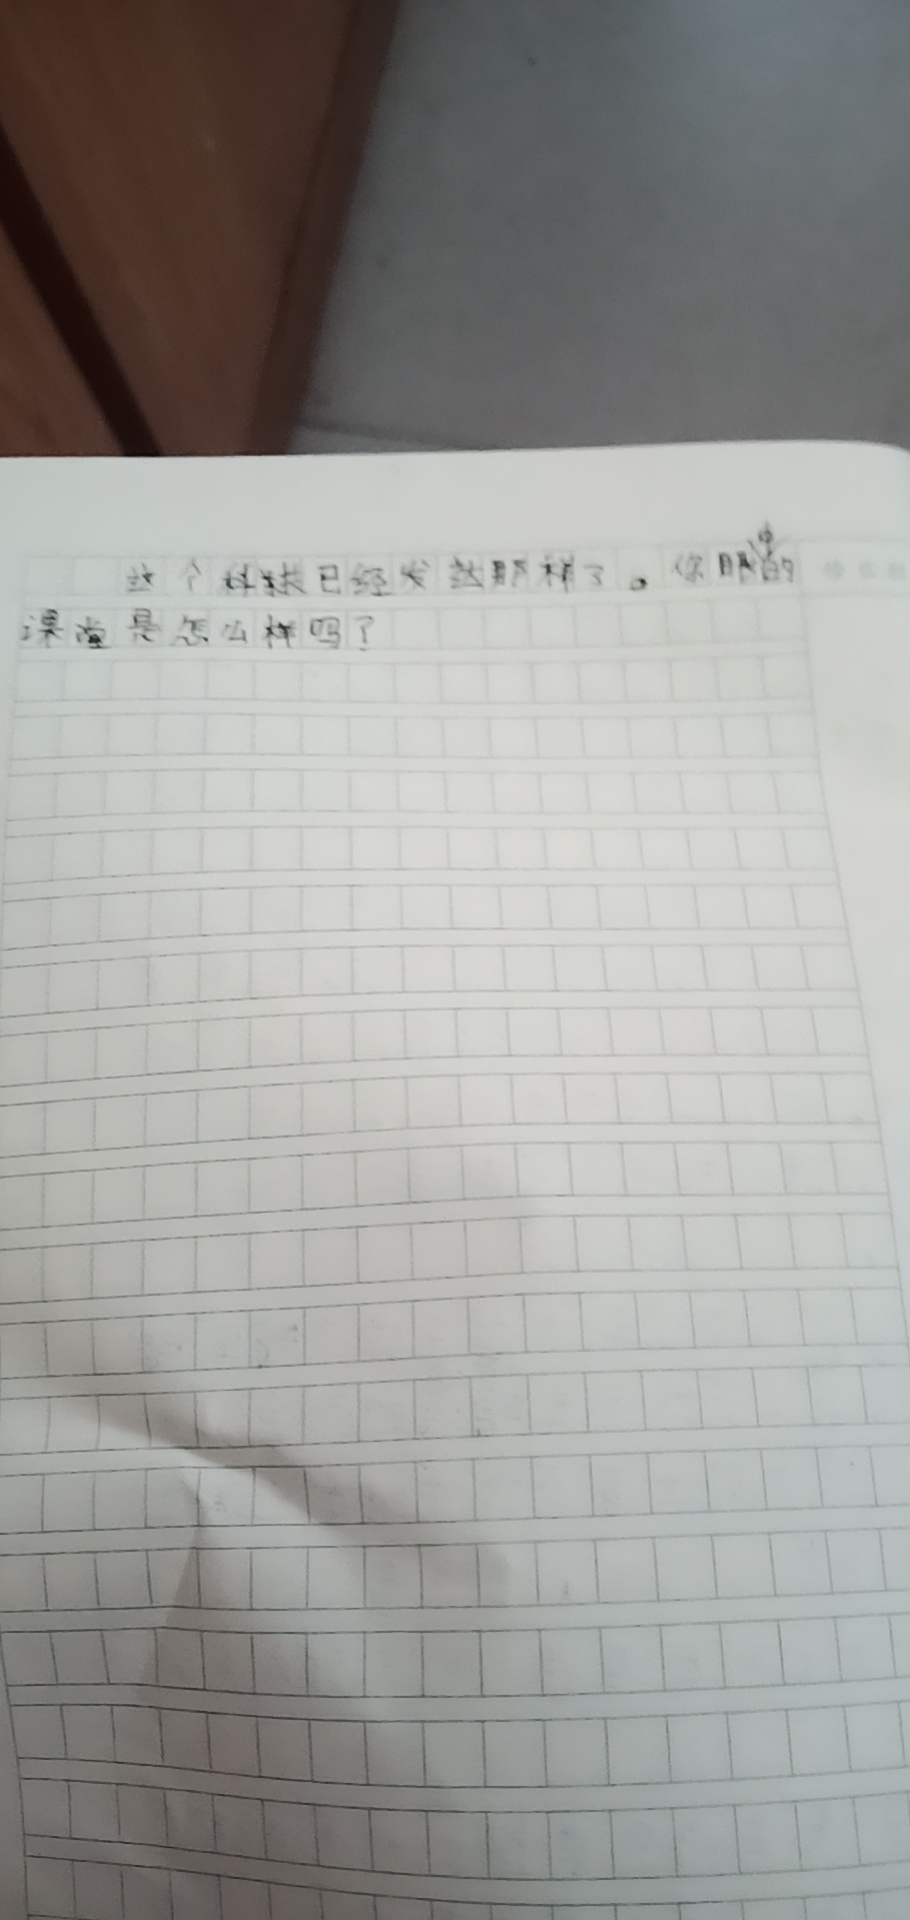 这个科技已经发达那样了。你眼中的
课堂是怎么样吗？